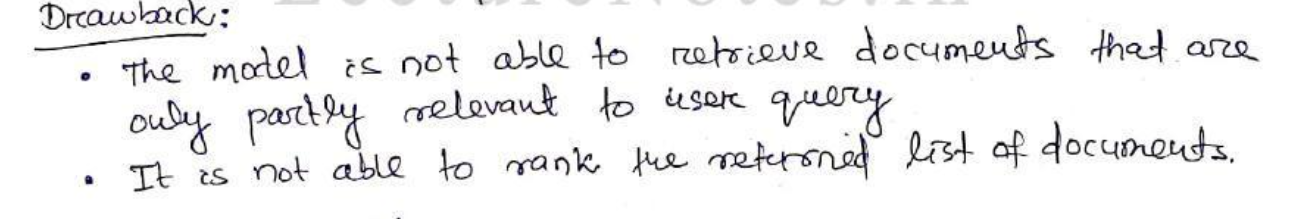 Drawback:
• The model is not able to retrieve documents that are
only partly relevant to user query
• It is not able to rank the returned list of documents.